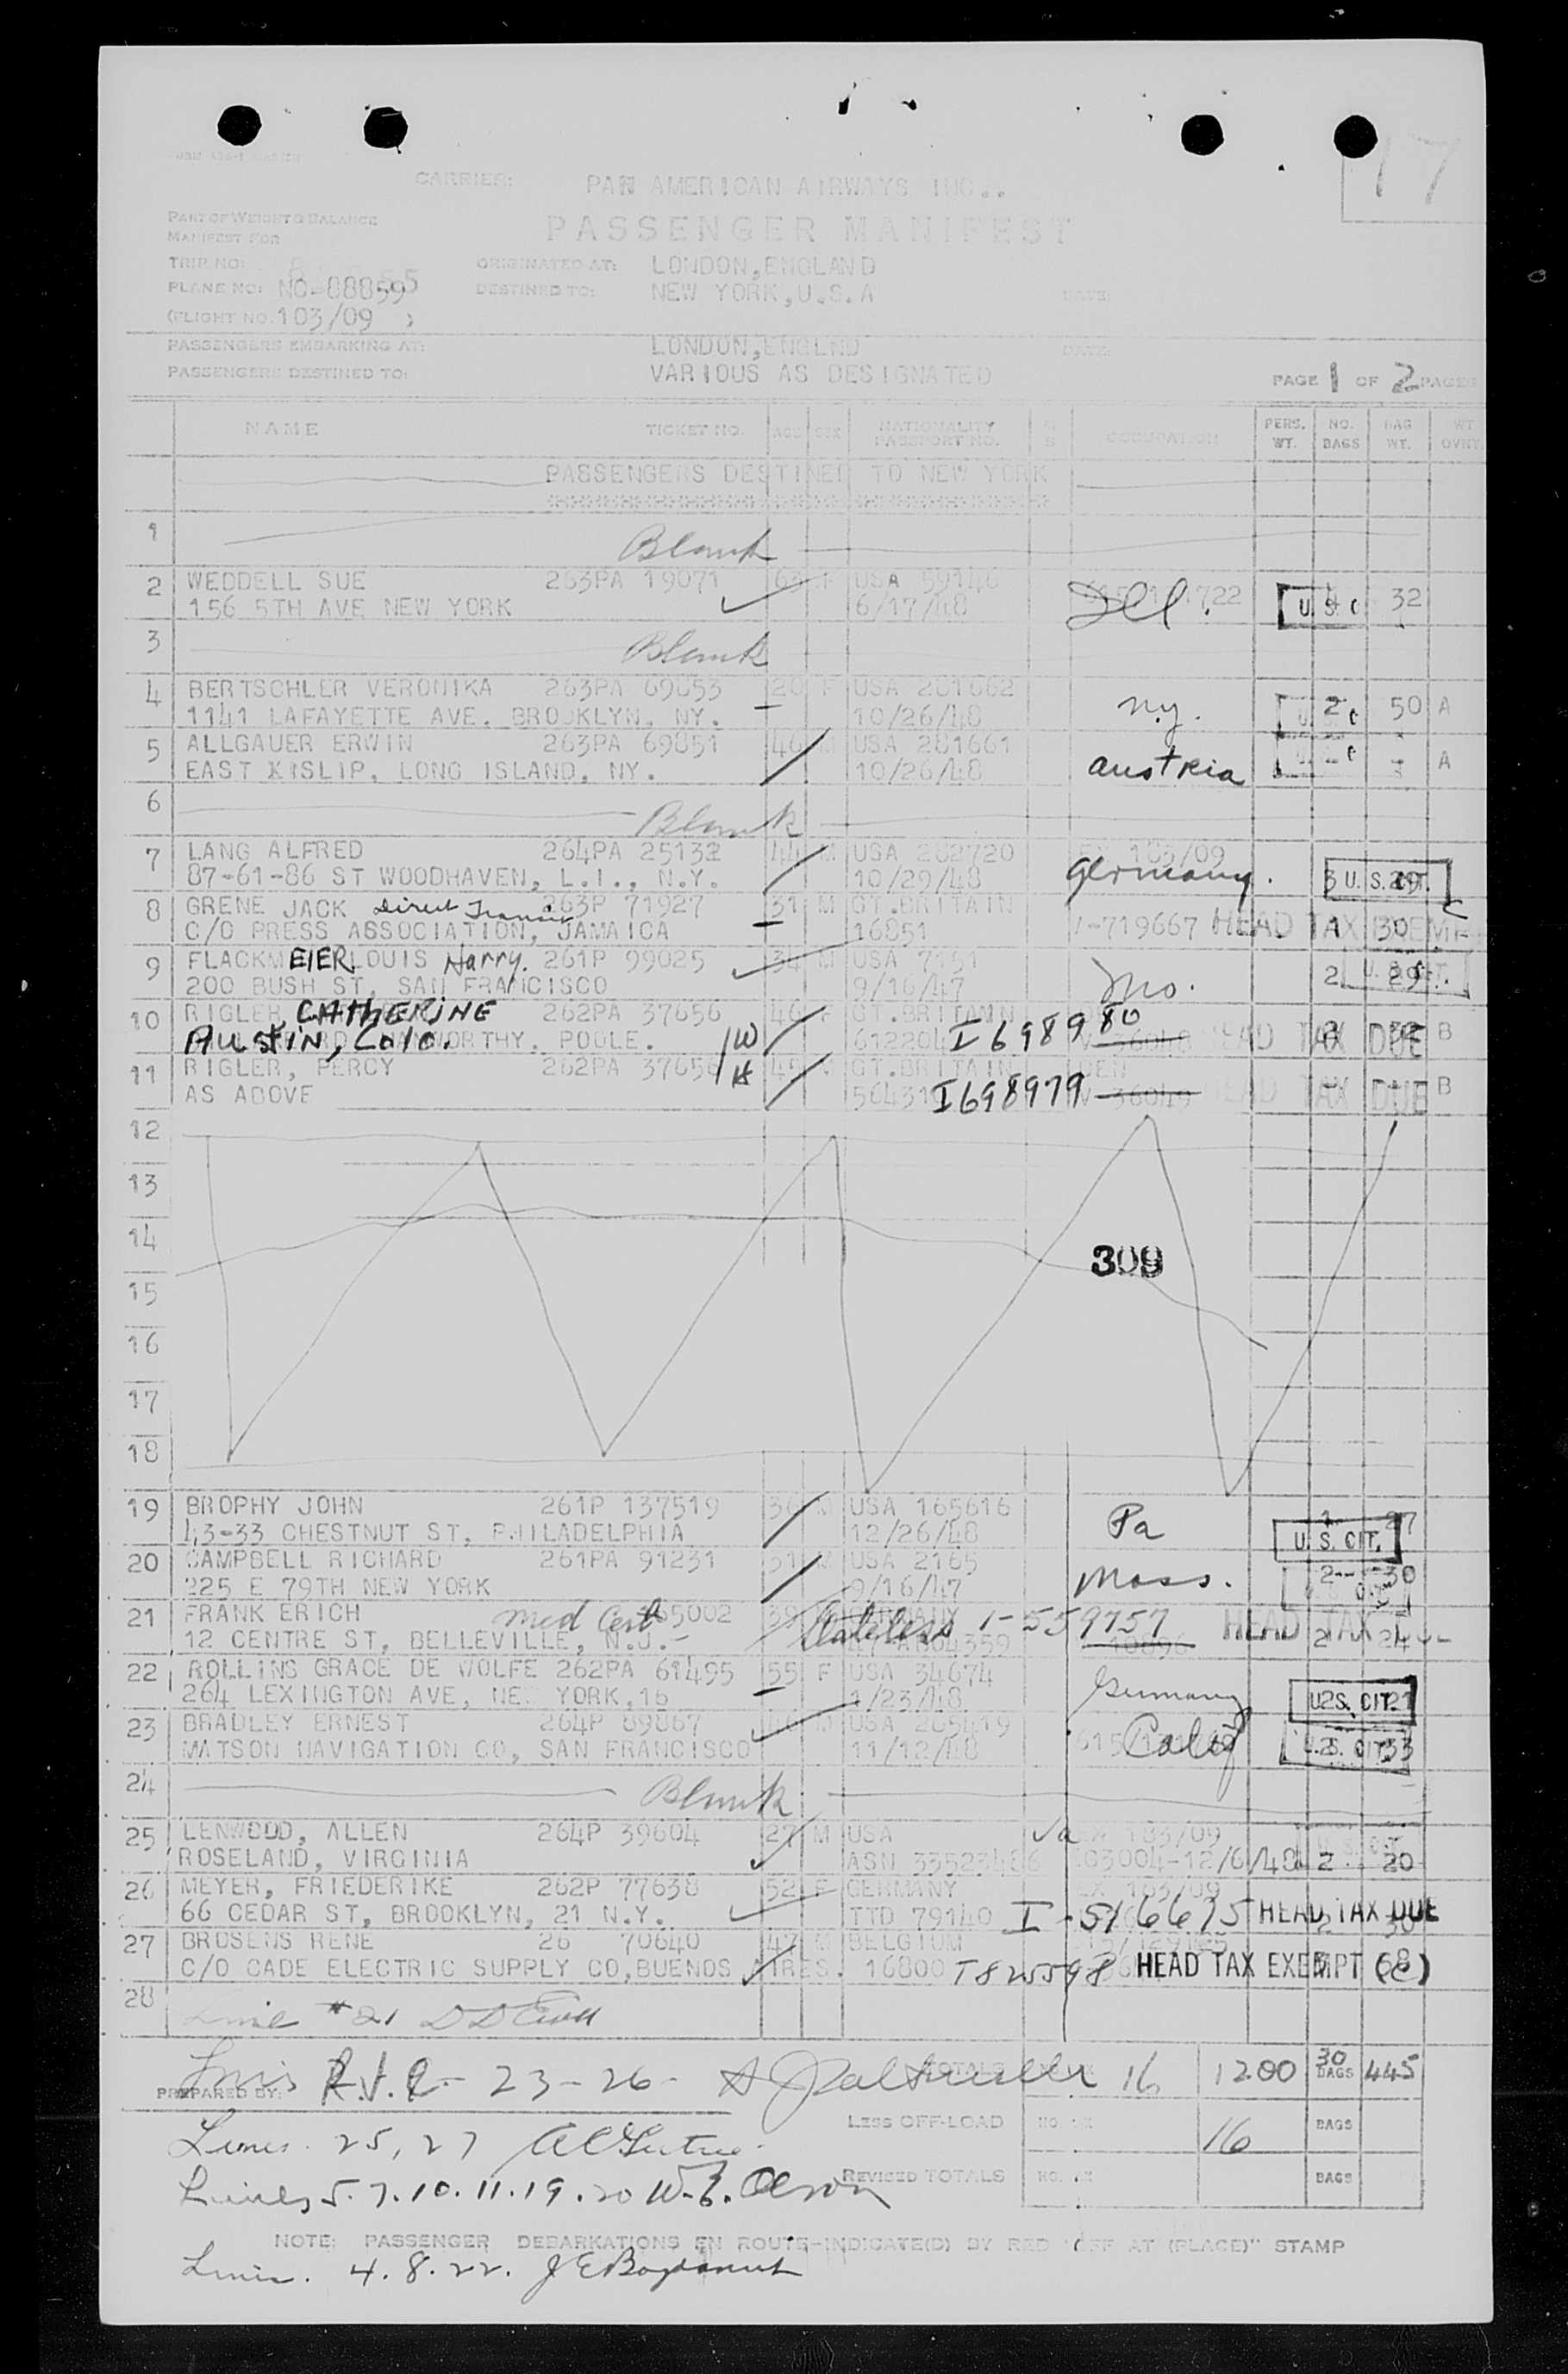 17
CARRIER: PAN AMERICAN AIRWAYS INC..
PART OF WEIGHT & BALANCE
MANIFEST FOR
PASSENGER MANIFEST
TRIP NO: ORIGINATED AT: LONDON, ENGLAND
PLANE NO: NC-88859 DESTINED TO: NEW YORK, U.S.A DATE:
(FLIGHT NO. 103/09 )
PASSENGERS EMBARKING AT: LONDON, ENGLND DATE:
PASSENGERS DESTINED TO: VARIOUS AS DESIGNATED PAGE 1 OF 2 PAGES
NAME TICKET NO. AGE SEX NATIONALITY PASSPORT NO. OCCUPATION PERS. WT. NO. BAGS BAG WT. WT OVHT.
PASSENGERS DESTINED TO NEW YORK
1 Blank
2 WEDDELL SUE 263PA 19071 63 F USA 59146 722 U.S.C 32
156 5TH AVE NEW YORK 6/17/48 Ill.
3 Blank
4 BERTSCHLER VERONIKA 263PA 69853 20 F USA 281662 2 50 A
1141 LAFAYETTE AVE. BROOKLYN, NY. 10/26/48 N.Y.
5 ALLGAUER ERWIN 263PA 69851 46 M USA 281661
EAST KISLIP, LONG ISLAND, NY. 10/26/48 Austria A
6 Blank
7 LANG ALFRED 264PA 25132 44 M USA 282720 EX 103/09
87-61-86 ST WOODHAVEN, L.I., N.Y. 10/29/48 Germany. 3 U.S. CIT. 29
8 GRENE JACK Direct Transit 263P 71927 31 M GT.BRITAIN
C/O PRESS ASSOCIATION, JAMAICA 16851 V-719667 HEAD TAX EXEMPT 1 30 C
9 FLACKMEIER LOUIS Harry. 261P 99025 34 M USA 7151
200 BUSH ST, SAN FRANCISCO 9/16/47 Mo. 2 29
10 RIGLER, CATHERINE 262PA 37656 46 F GT.BRITAIN
Austin, Colo. WORTHY, POOLE. 1W 612204 I698980 36048 HEAD TAX DUE 2 B
11 RIGLER, PERCY 262PA 37656 1H 45 M GT.BRITAIN
AS ABOVE 56431 I698979 V-36049 HEAD TAX DUE B
12
13
14
309
15
16
17
18
19 BROPHY JOHN 261P 137519 36 M USA 165616
43-33 CHESTNUT ST, PHILADELPHIA 12/26/48 Pa U.S. CIT. 27
20 CAMPBELL RICHARD 261PA 91231 31 M USA 2165
225 E 79TH NEW YORK 9/16/47 Mass. 2 30
21 FRANK ERICH Med Cert 65002 39 Stateless I-559757 HEAD TAX DUE
12 CENTRE ST, BELLEVILLE, N.J.- 10896 2 24
22 ROLLINS GRACE DE WOLFE 262PA 61495 55 F USA 34674
264 LEXINGTON AVE, NE YORK, 16 1/23/48 Germany U.S. CIT. 2 21
23 BRADLEY ERNEST 264P 89867 M USA 285419
MATSON NAVIGATION CO, SAN FRANCISCO 11/12/48 Calif U.S. CIT. 2 33
24 Blank
25 LENWOOD, ALLEN 264P 39604 27 M USA Va EX 103/09
ROSELAND, VIRGINIA ASN 33523486 03004-12/6/48 2 20
26 MEYER, FRIEDERIKE 262P 77638 52 F GERMANY EX 103/09
66 CEDAR ST, BROOKLYN, 21 N.Y. TTD 79140 I-516675 HEAD TAX DUE 2 30
27 BROSENS RENE 26 70640 47 M BELGIUM
C/O CADE ELECTRIC SUPPLY CO, BUENOS AIRES. 16800 T825598 HEAD TAX EXEMPT (C)
28 Line #21
PREPARED BY: Lines 23-26- TOTALS 16 1200 30 BAGS 445
LESS OFF-LOAD NO. 16 BAGS
Lines 25, 27
REVISED TOTALS NO. BAGS
Lines 5. 7. 10. 11. 19. 20 W. E. Olson
NOTE: PASSENGER DEBARKATIONS EN ROUTE-INDICATE(D) BY RED "OFF AT (PLACE)" STAMP
Lines. 4. 8. 22.